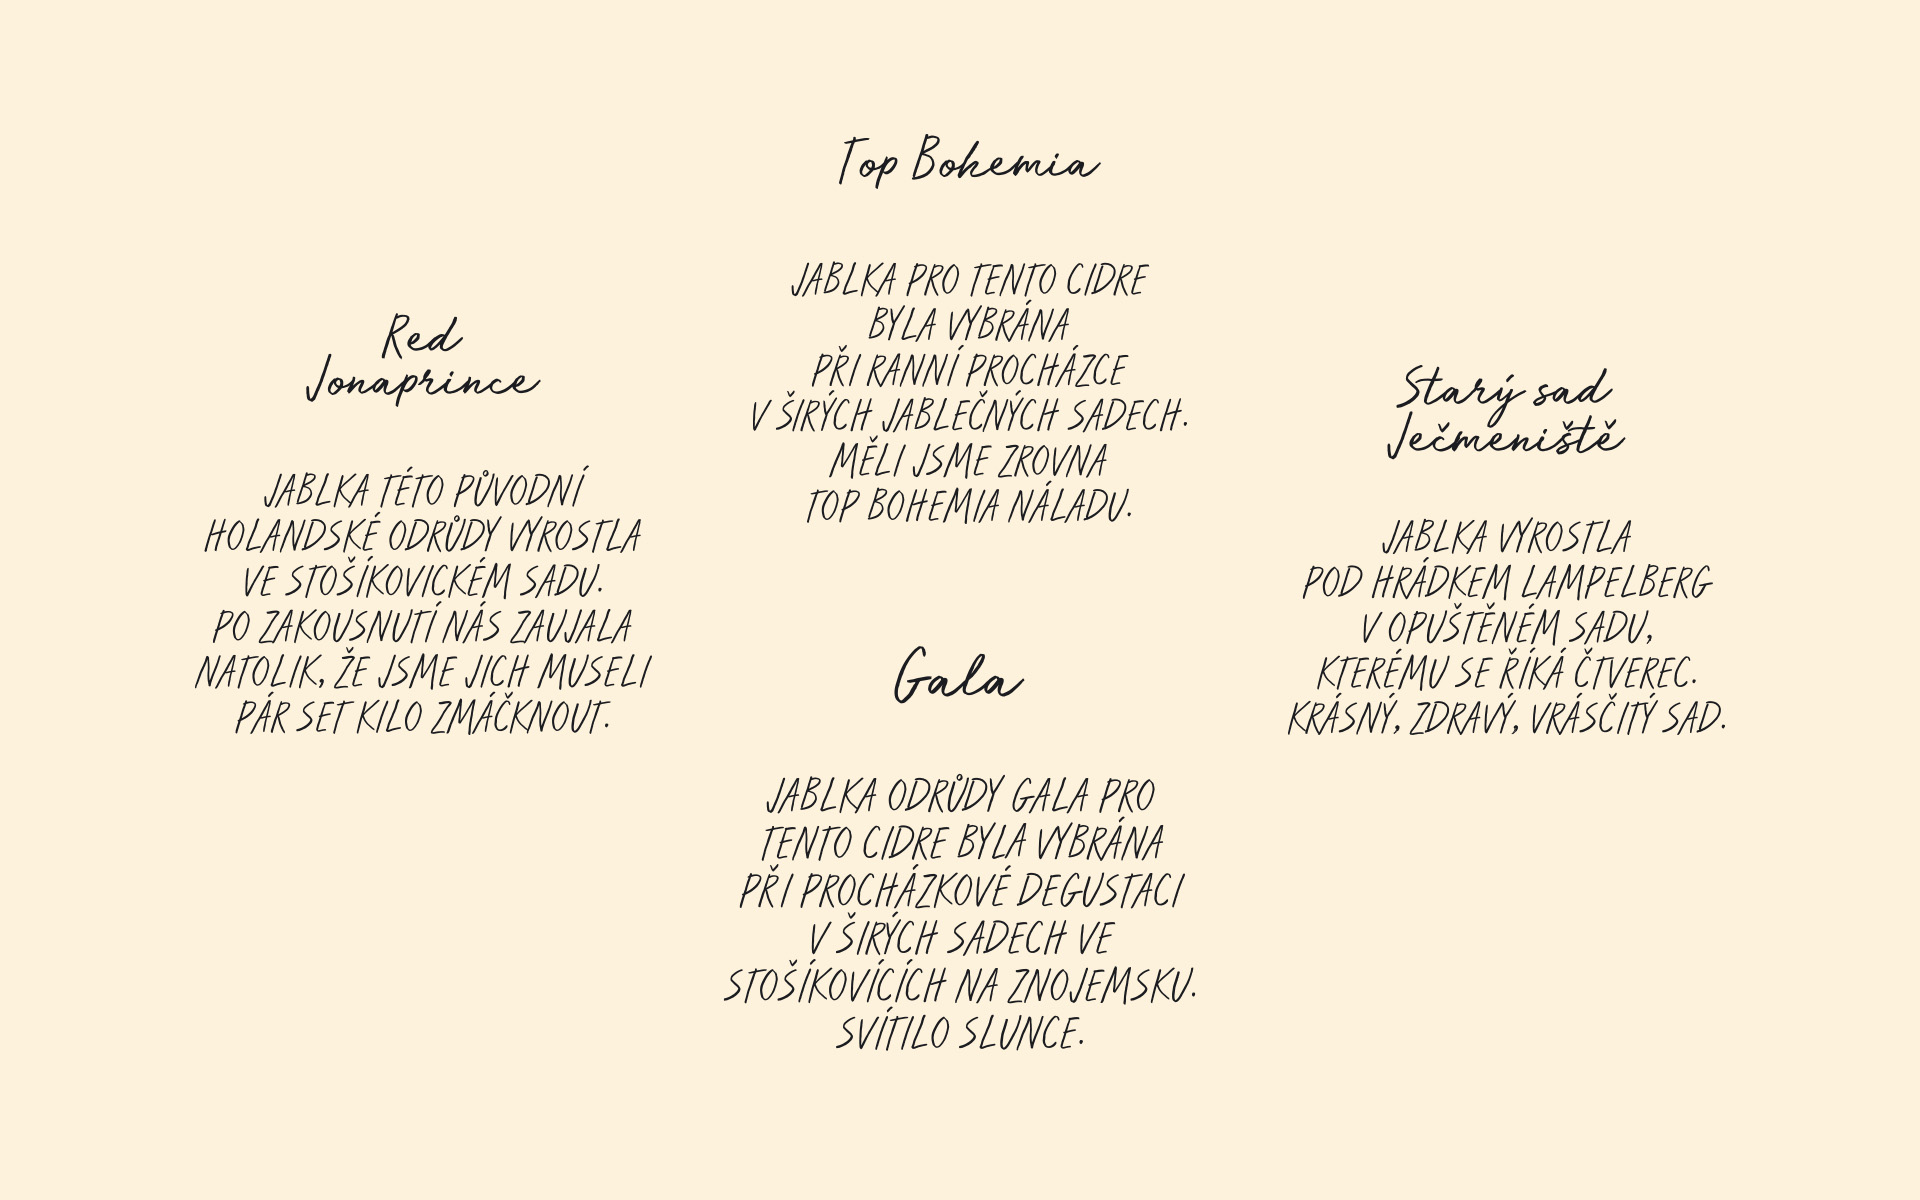 Top Bohemia
JABLKA PRO TENTO CIDRE
BYLA VYBRÁNA
PŘI RANNÍ PROCHÁZCE
V ŠIRÝCH JABLEČNÝCH SADECH.
MĚLI JSME ZROVNA
TOP BOHEMIA NÁLADU.
Red
Jonaprince
JABLKA TÉTO PŮVODNÍ
HOLANDSKÉ ODRŮDY VYROSTLA
VE STOŠÍKOVICKÉM SADU.
PO ZAKOUSNUTÍ NÁS ZAUJALA
NATOLIK, ŽE JSME JICH MUSELI
PÁR SET KILO ZMÁČKNOUT.
Gala
JABLKA ODRŮDY GALA PRO
TENTO CIDRE BYLA VYBRÁNA
PŘI PROCHÁZKOVÉ DEGUSTACI
V ŠIRÝCH SADECH VE
STOŠÍKOVÍCÍCH NA ZNOJEMSKU.
SVÍTILO SLUNCE.
Starý sad
Ječmeniště
JABLKA VYROSTLA
POD HRÁDKEM LAMPELBERG
V OPUŠTĚNÉM SADU,
KTERÉMU SE ŘÍKÁ ČTVEREC.
KRÁSNÝ, ZDRAVÝ, VRÁSČITÝ SAD.